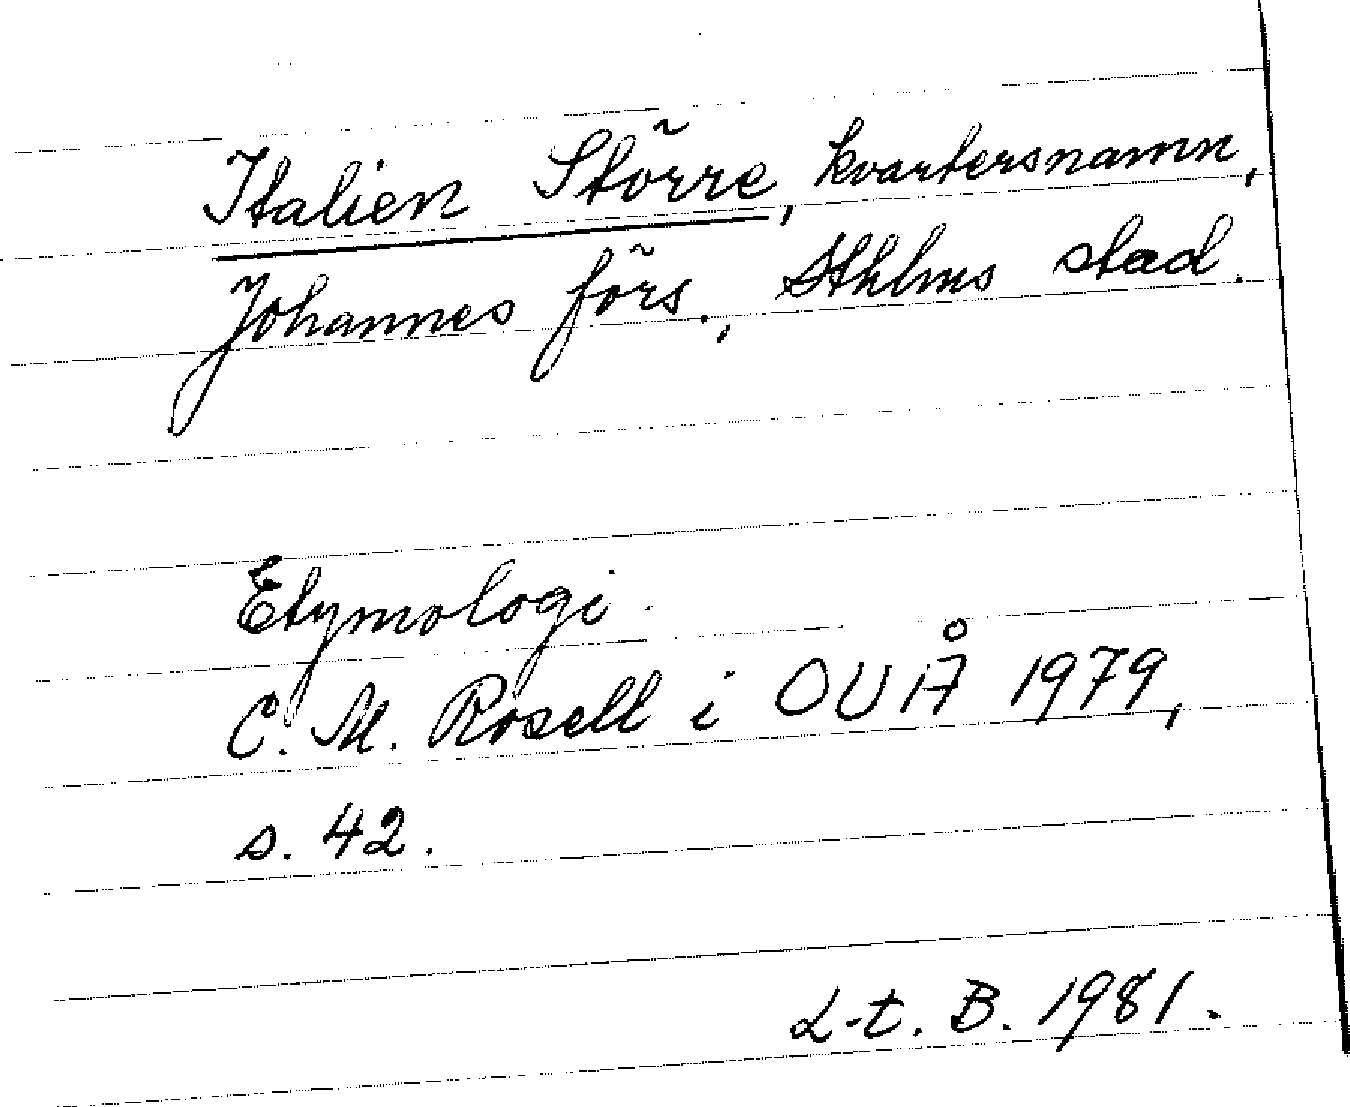 Italien Större, kvartersnamn,
Johannes förs., Sthlms stad.
Etymologi.
C. M. Rosell i OUÅ 1979,
s. 42.
L-t. B. 1981.